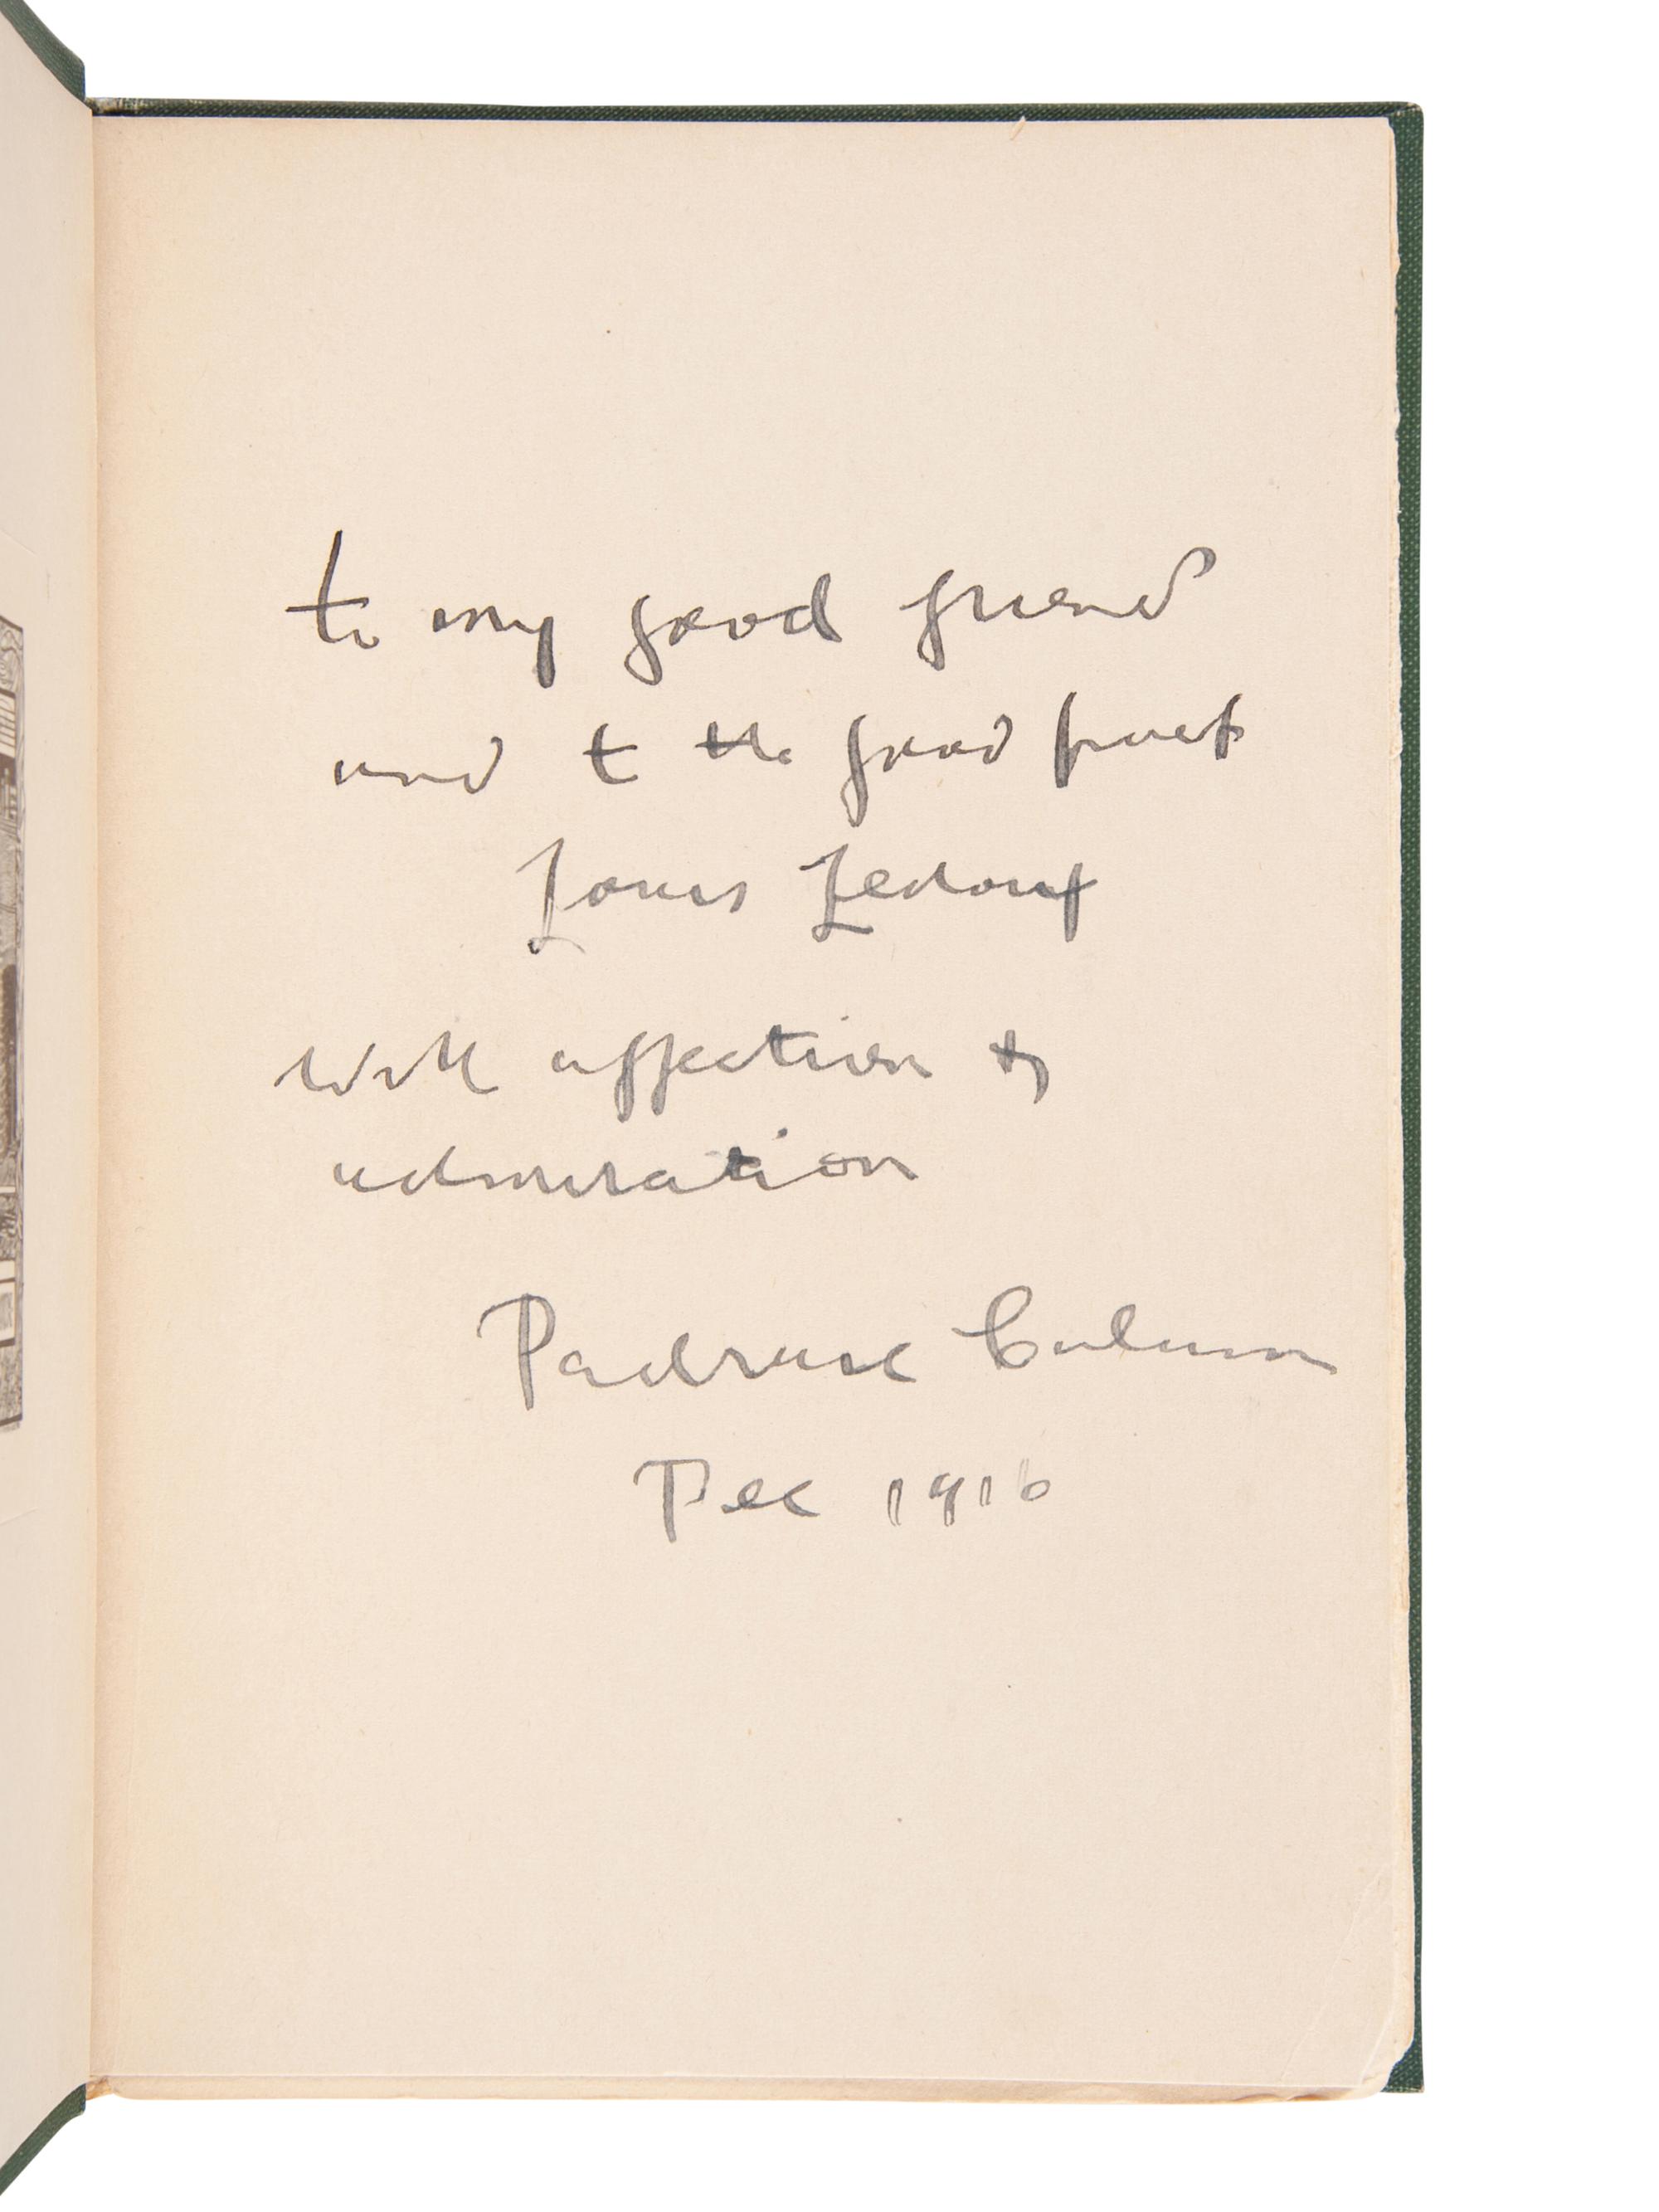 to my good friend
and to the good poet
Louis Ledoux
With affection &
admiration
Padraic Colum
Dec 1916